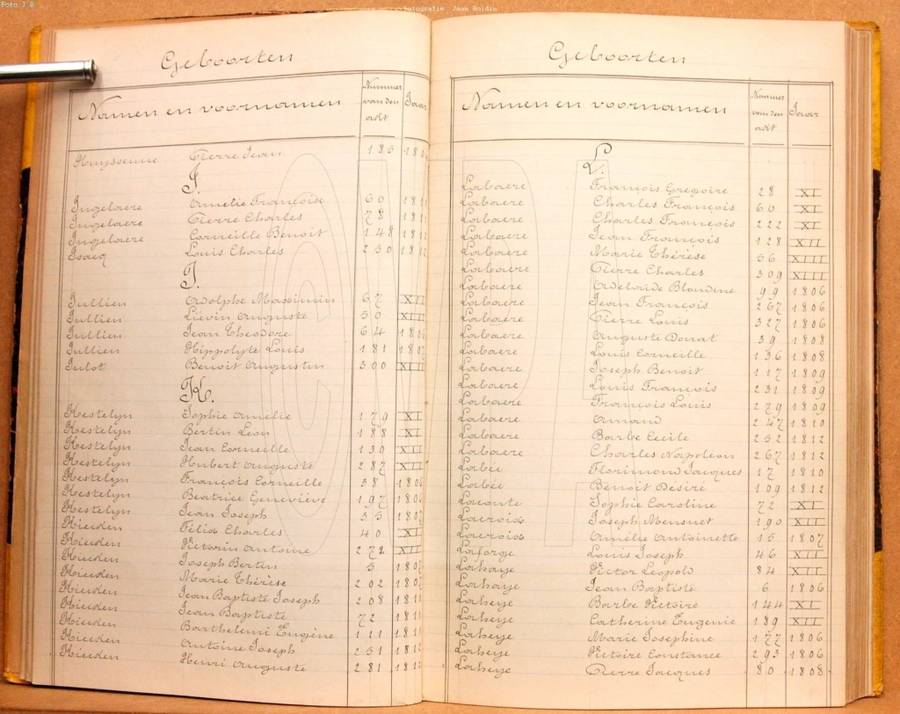 Foto J B
fotografie Jean Boidin
Geboorten
Namen en voornamen Nummer van den act Jaar
Huyssenne Pierre Jean 185
I.
Ingelaere Amelie Françoise 60
Ingelaere Pierre Charles 78
Ingelaere Corneille Benoit 148
Isacq Louis Charles 250
J.
Jullien Adolphe Maximin 67 XII
Jullien Liévin Auguste 50 XIII
Jullien Jean Theodore 64
Jullien Hippolyte Louis 181
Julot Benoit Augustin 300 XII
K.
Kestelyn Sophie Amelie 179 XI
Kestelyn Bertin Leon 188 XI
Kestelyn Jean Corneille 130 XII
Kestelyn Hubert Auguste 287 XII
Kestelyn François Corneille 38
Kestelyn Beatrice Geneviève 197
Kestelyn Jean Joseph 35
Kieuden Félix Charles 40 XI
Kieuden Victorin Antoine 272 XII
Kieuden Joseph Bertin 5
Kieuden Marie Thérèse 202
Kieuden Jean Baptiste Joseph 208
Kieuden Jean Baptiste 72
Kieuden Barthelemi Eugène 111
Kieuden Antoine Joseph 251
Kieuden Henri Auguste 281
Geboorten
Namen en voornamen Nummer van den act Jaar
L.
Labaere François Gregoire 28 XI
Labaere Charles François 60 XI
Labaere Charles François 222 XI
Labaere Jean François 128 XII
Labaere Marie Thérèse 56 XIII
Labaere Pierre Charles 309 XIII
Labaere Adelaide Blondine 99 1806
Labaere Jean François 267 1806
Labaere Pierre Louis 327 1806
Labaere Auguste Donat 39 1808
Labaere Louis Corneille 136 1808
Labaere Joseph Benoit 117 1809
Labaere Louis François 231 1809
Labaere François Louis 279 1809
Labaere Amand 247 1810
Labaere Barbe Cecile 252 1812
Labaere Charles Napoleon 267 1812
Labée Florimond Jacques 17 1810
Labée Benoit Désiré 109 1812
Laconte Sophie Caroline 72 XI
Lacroix Joseph Mensuet 190 XII
Lacroix Amélie Antoinette 15 1807
Laforge Louis Joseph 46 XII
Lahaye Victor Leopold 84 XII
Lahaye Jean Baptiste 6 1806
Laheye Barbe Victoire 144 XI
Laheye Catherine Eugenie 189 XII
Laheye Marie Josephine 177 1806
Laheye Victoire Constance 293 1806
Laheye Pierre Jacques 80 1808